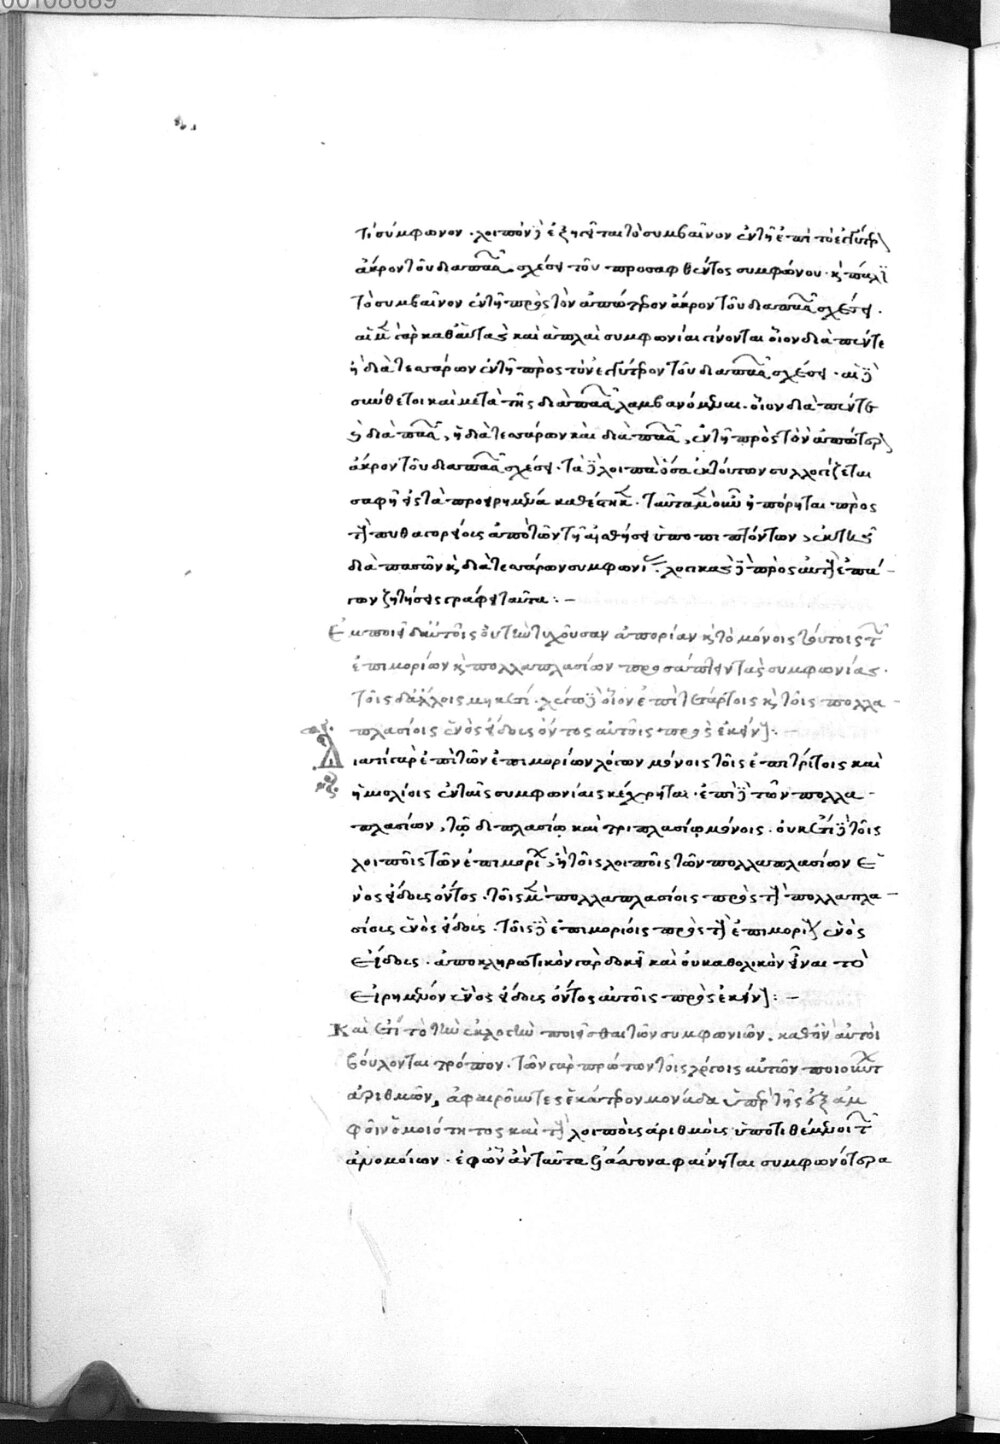 00108689
τισύμφωνον. λοιπὸν δὲ ἐξήσῃται τὸ συμβαῖνον ἐν τῇ ἐπὶ τὸ ἐγγύτερον
ἄκρον τοῦ διαπασῶν σχέσει τοῦ προσαφθέντος συμφώνου. καὶ πάλιν
τὸ συμβαῖνον ἐν τῇ πρὸς τὸν ἀπώτερον ἄκρον τοῦ διαπασῶν σχέσει.
αἱ μὲν γὰρ καθ' αὑτὰς καὶ ἁπλαῖ συμφωνίαι γίνονται οἷον διὰ πέντε
ἢ διὰ τεσσάρων ἐν τῇ πρὸς τὸν ἐγγύτερον τοῦ διαπασῶν σχέσει. αἱ δὲ
σύνθετοι καὶ μετὰ τῆς διαπασῶν λαμβανόμεναι. οἷον διὰ πέντε
ἢ διαπασῶν, ἢ διὰ τεσσάρων καὶ διαπασῶν, ἐν τῇ πρὸς τὸν ἀπώτερον
ἄκρον τοῦ διαπασῶν σχέσει. τὰ δὲ λοιπὰ ὅσα ἐκ τούτων συλλογίζεται
σαφῆ εἰς τὰ προειρημένα καθέστηκε. ταῦτα μὲν οὖν ἠπόρηται πρὸς
τοὺς πυθαγορείους ἀπὸ τῶν τῇ αἰσθήσει ὑποπιπτόντων, ἐκ τῆς
διαπασῶν καὶ διὰ τεσσάρων συμφωνίας. λογικὰς δὲ πρὸς αὐτοὺς ἐπά-
γων ζητήσεις γράφει ταῦτα:-
Ἐμποιεῖ δ' αὐτοῖς οὐ τὴν τυχοῦσαν ἀπορίαν καὶ τὸ μόνοις τούτοις τῶν
ἐπιμορίων καὶ πολλαπλασίων προσάπτειν τὰς συμφωνίας.
τοῖς δ' ἄλλοις μηκέτι. λέγω δὲ οἷον ἐπιτετάρτοις καὶ τοῖς πολλα-
πλασίοις ἑνὸς εἴδους ὄντος αὐτοῖς πρὸς ἐκείνους:
Διατί γὰρ ἐπὶ τῶν ἐπιμορίων λόγων μόνοις τοῖς ἐπιτρίτοις καὶ
ἡμιολίοις ἐν ταῖς συμφωνίαις κέχρηται. ἐπὶ δὲ τῶν πολλα-
πλασίων, τῷ διπλασίῳ καὶ τριπλασίῳ μόνοις. οὐκέτι δὲ τοῖς
λοιποῖς τῶν ἐπιμορίων, ἢ τοῖς λοιποῖς τῶν πολλαπλασίων ἑ
νὸς εἴδους ὄντος. τοῖς μὲν πολλαπλασίοις πρὸς τοὺς πολλαπλα-
σίους ἑνὸς εἴδους. τοῖς δὲ ἐπιμορίοις πρὸς τοὺς ἐπιμορίους ἑνὸς
εἴδους. ἀποκληρωτικὸν γὰρ δοκεῖ καὶ οὐ καθολικὸν εἶναι τὸ
εἰρημένον ἑνὸς εἴδους ὄντος αὐτοῖς πρὸς ἐκείνους:-
Καὶ ἔτι τὸ τὴν ἐκλογὴν ποιεῖσθαι τῶν συμφωνιῶν, καθ' ὃν αὐτοὶ
βούλονται τρόπον. τῶν γὰρ πρώτων τοῖς λόγοις αὐτῶν ποιούντων
ἀριθμῶν, ἀφαιροῦντες ἑκατέρου μονάδα ὑπὲρ τῆς ἐξ ἀμ
φοῖν ὁμοιότητος καὶ τοὺς λοιποὺς ἀριθμοὺς ὑποτιθέμενοι τῶν
ἀνομοίων. ἐφ' ὧν ἂν ταῦτα ἐλάττονα φαίνηται συμφωνότερα